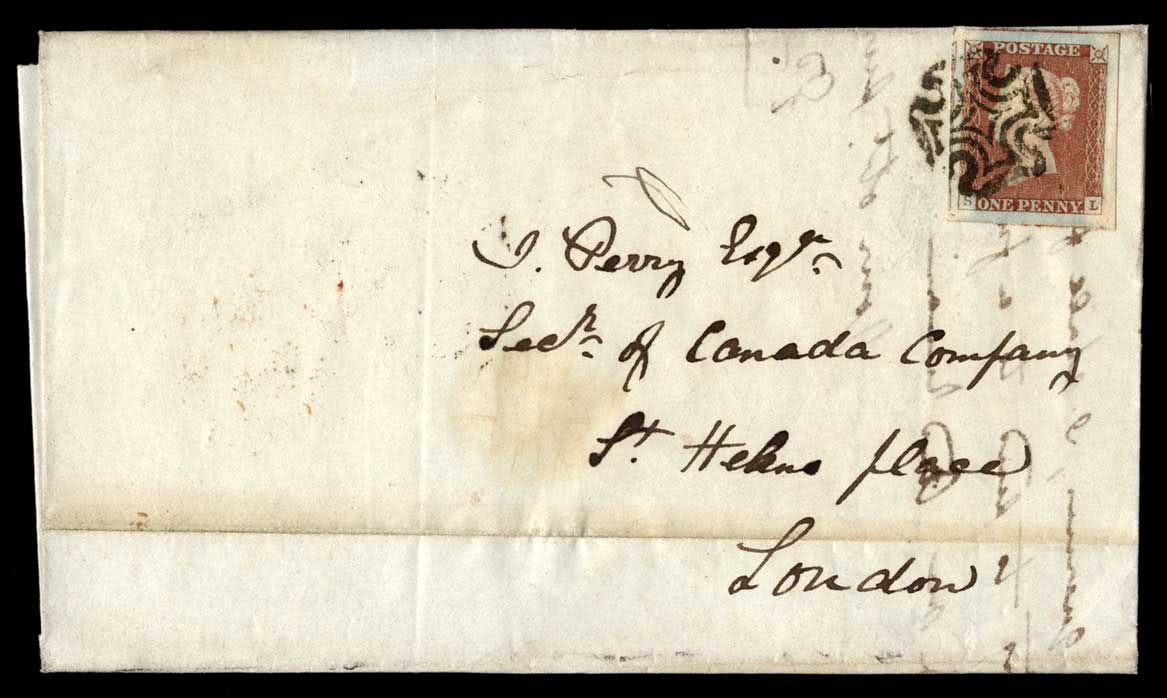 POSTAGE
S ONE PENNY L
J. Perry Esqr.
Secr. of Canada Company
St. Helens place
London